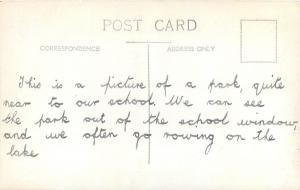 POST CARD
CORRESPONDENCE
ADDRESS ONLY
This is a picture of a park, quite
near to our school. We can see
the park out of the school window,
and we often go rowing on the
lake